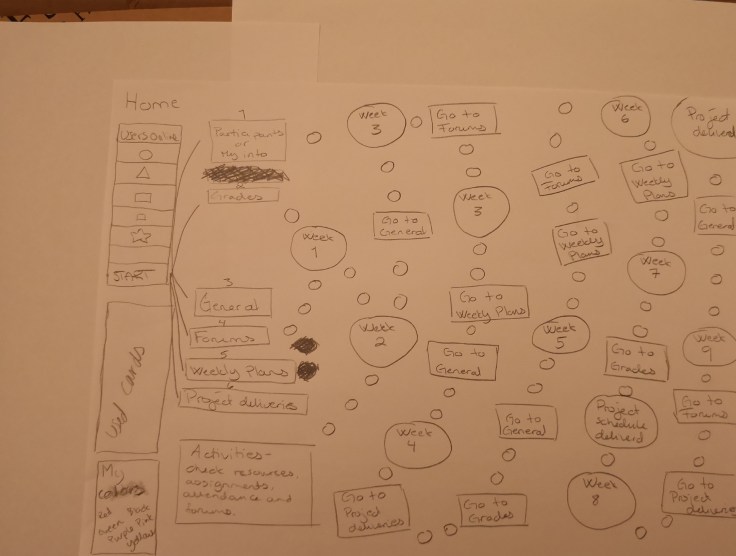 Home
Users Online
START
Used cards
My
colors
Red
Green Black
Purple Pink
yellow
1
Participants
or
My info
Grades
3
General
4
Forums
5
Weekly Plans
6
Project deliveries
Activities-
check resources,
assignments,
attendance and
forums.
Week
1
Week
3
Go to
General
Week
2
Week
4
Go to
Project
deliveries
Go to
Forums
Week
3
Go to
Weekly Plans
Go to
General
Go to
Grades
Go to
Forums
Go to
Weekly
Plans
Week
5
Go to
General
Week
6
Go to
Weekly
Plans
Week
7
Go to
Grades
Project
schedule
deliverd
Week
8
Project
deliverd
Go to
General
Week
9
Go to
Forums
Go to
Project
deliveries